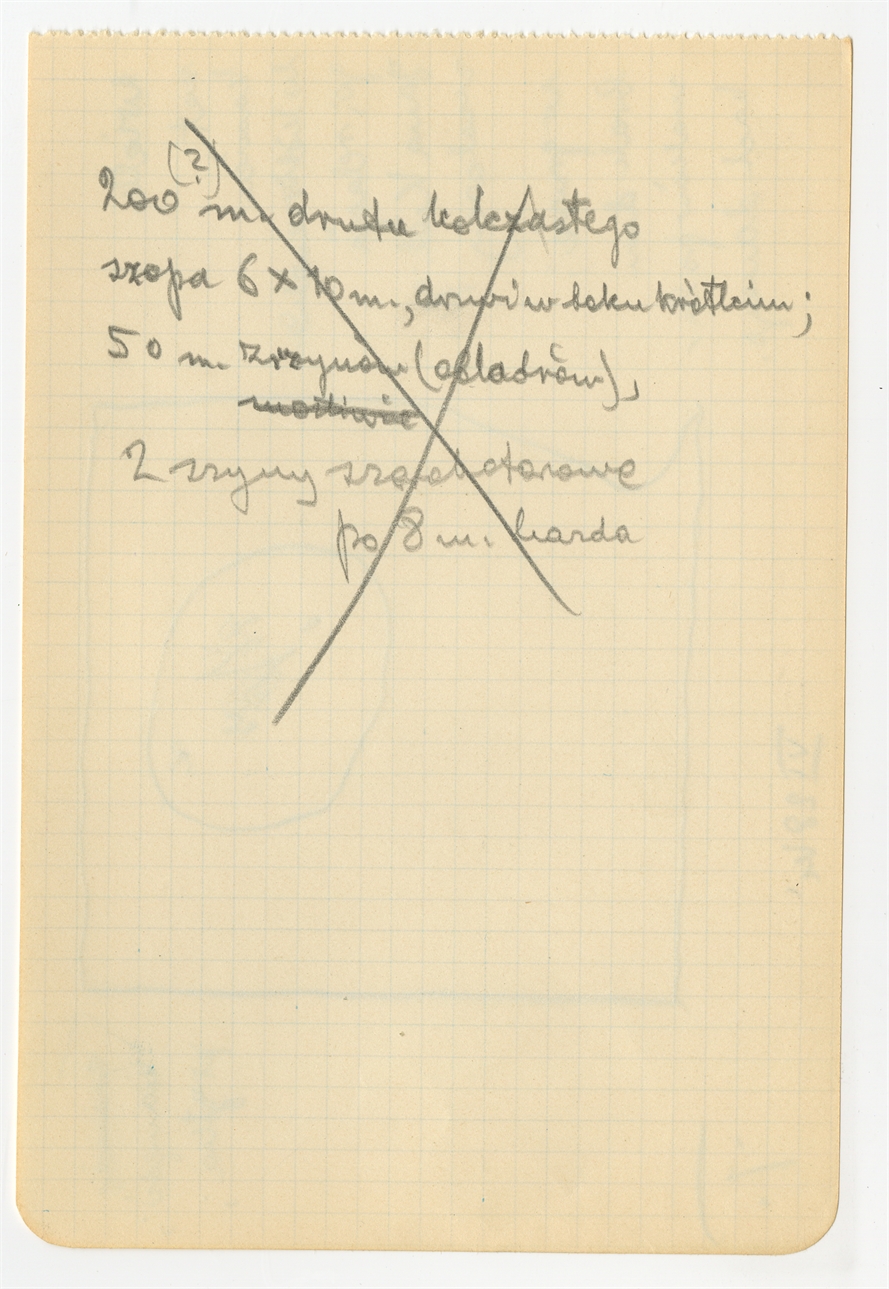 (?)
200 m. drutu kolczastego
szopa 6 x 10 m., drzwi w boku krótkim;
50 m. zrzynów (obladrów),
możliwie
2 szyny szerokotorowe
po 8 m. każda